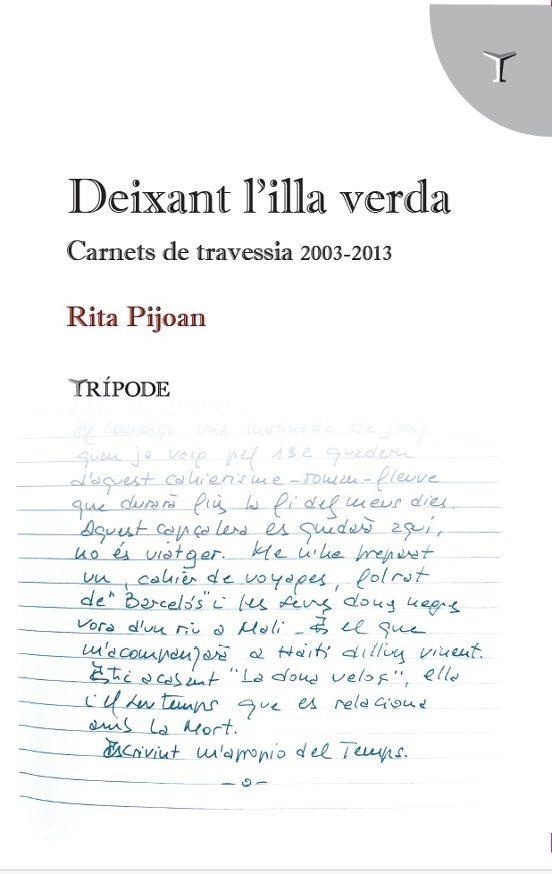 Deixant l'illa verda
Carnets de travessia 2003-2013
Rita Pijoan
TRÍPODE
començo una matinada de juny
quan ja vaig pel 132 quadern
d'aquest cahierisme-roman-fleuve
que durarà fins la fi dels meus dies.
Aquest capçalera es quedarà aquí,
no és viatger. Me n'he preparat
un, cahier de voyages, folrat
de "Barceló" i les seves dones negres
vora d'un riu a Mali - És el que
m'acompanyarà a Haití dilluns vinent.
Estic acabant "La dona veloç", ella
i el seu temps que es relaciona
amb la Mort.
Escrivint m'apropio del Temps.